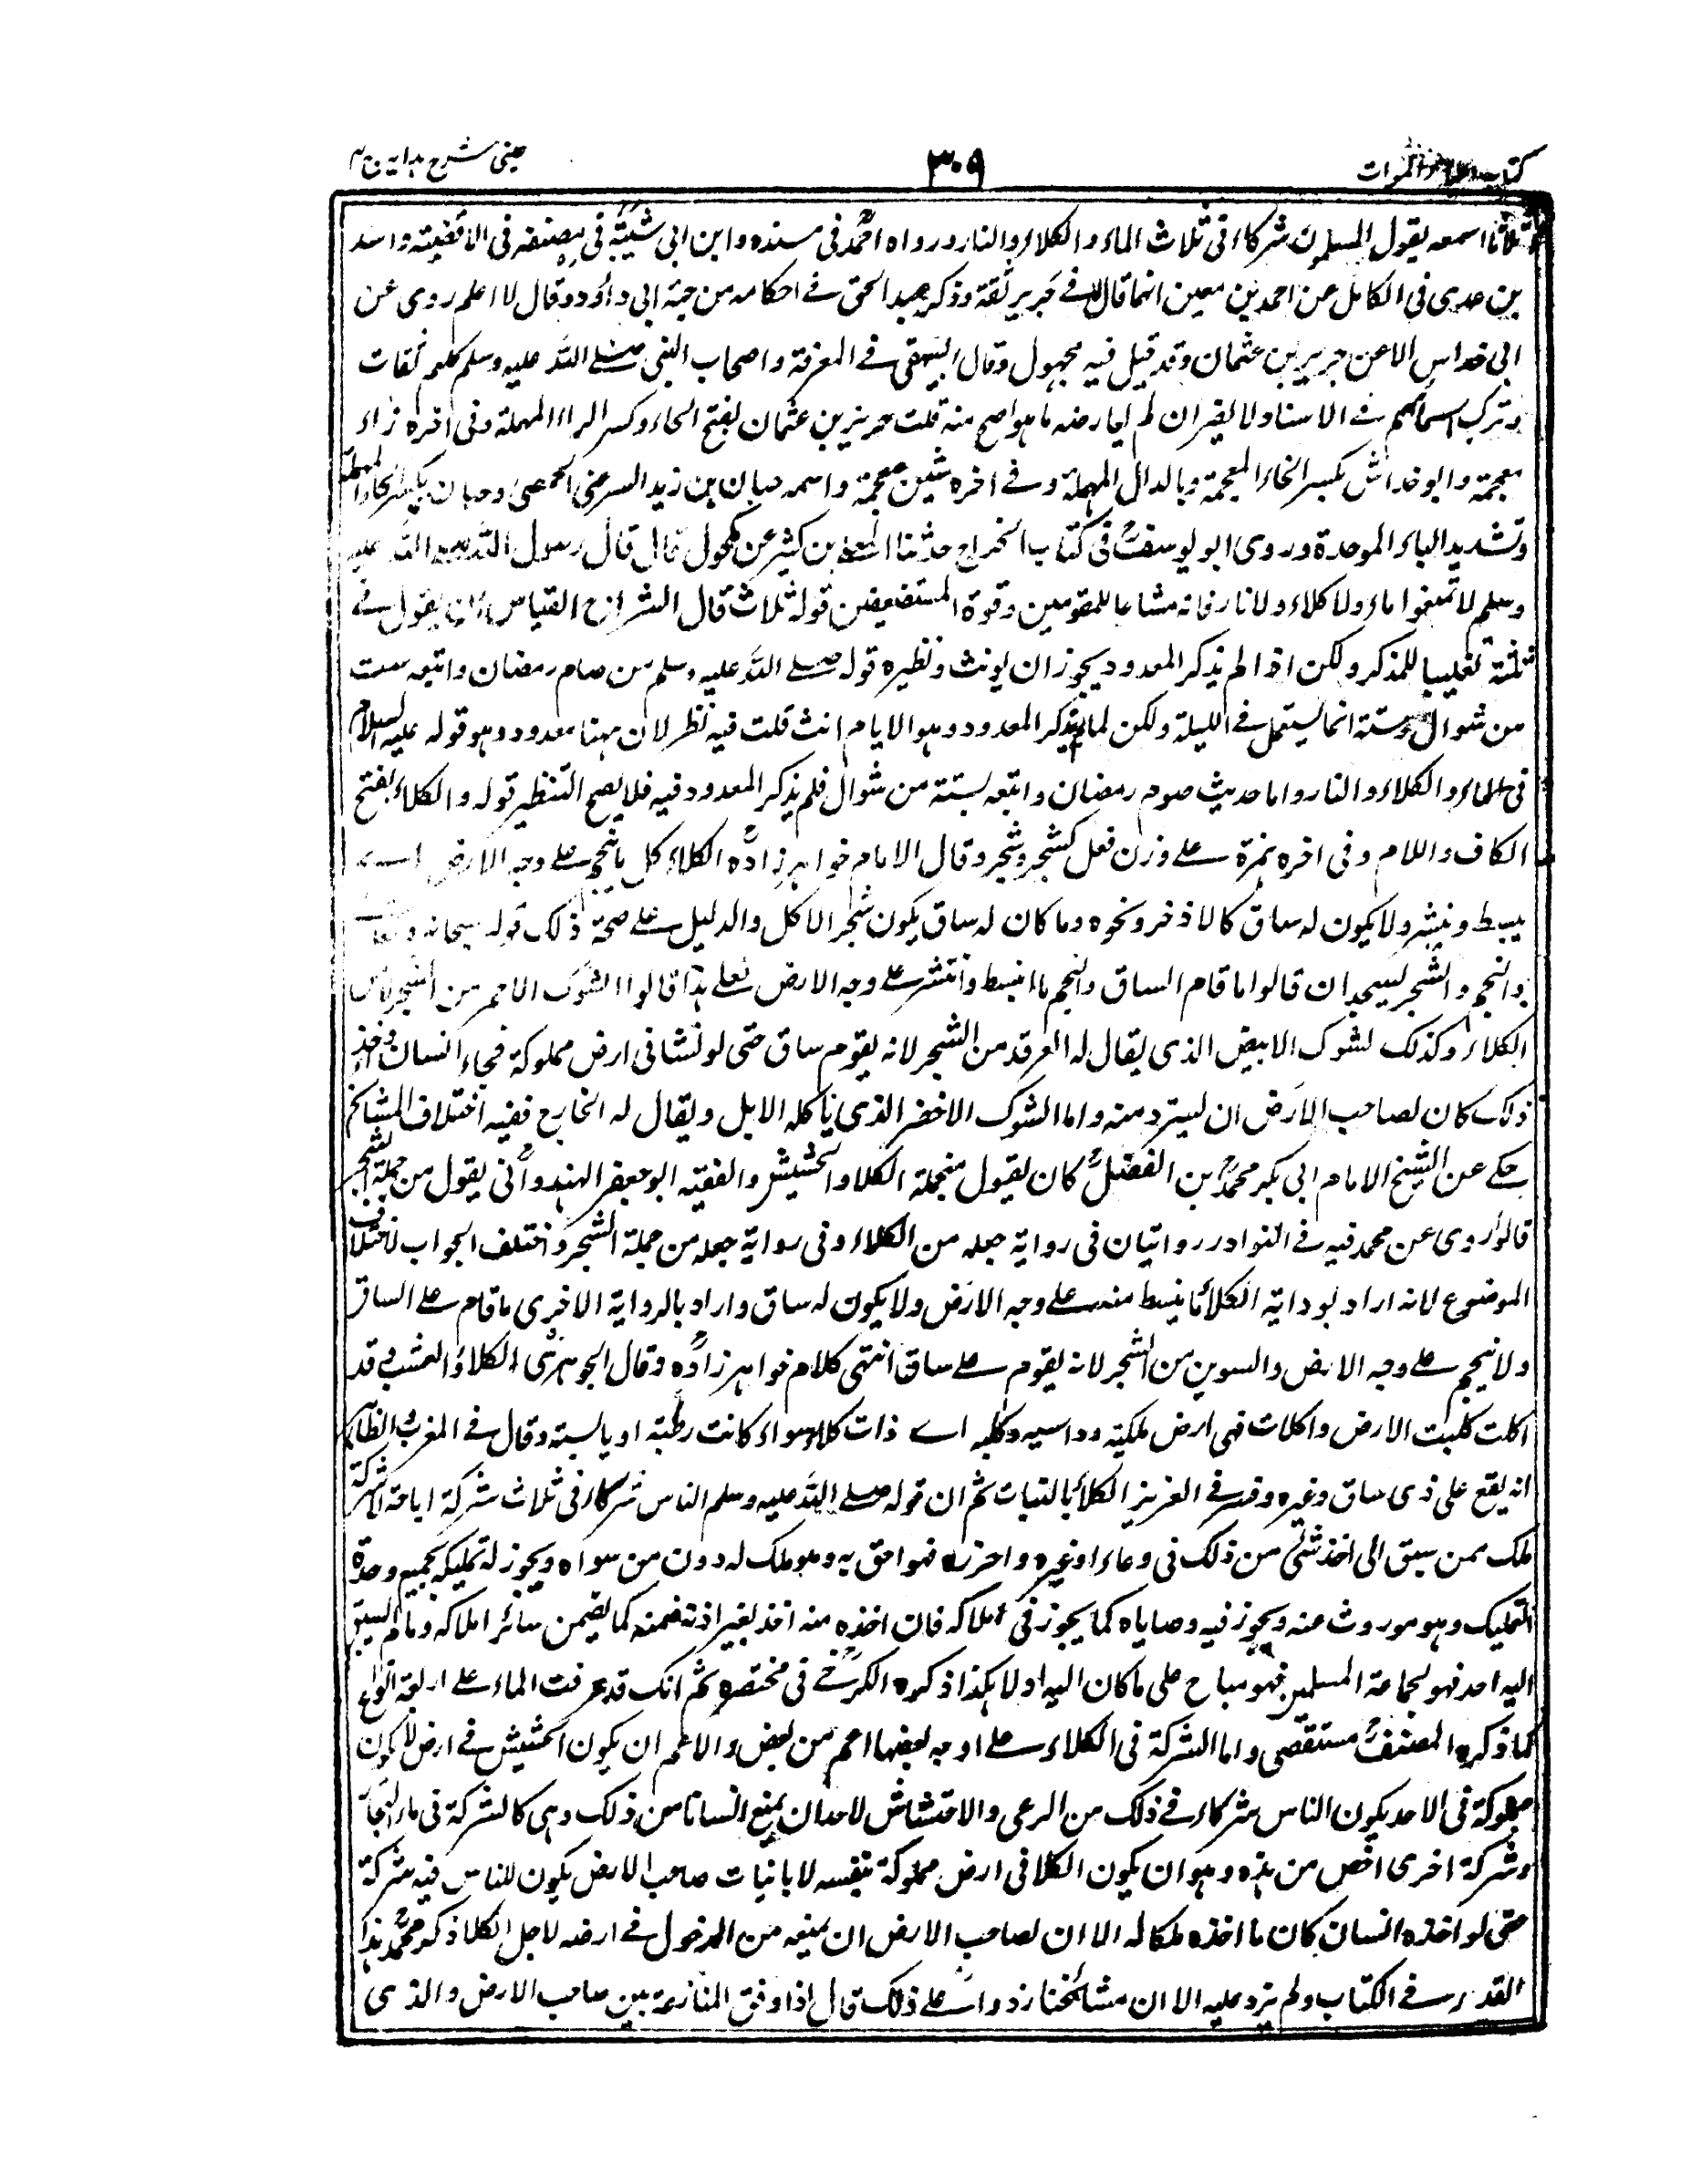 كتاب احياء الموات
٣٠٩
عينى شرح هداية ج ٤
ثلاثا اسمعه يقول المسلمون شركاء فى ثلاث الماء والكلاء والنار ورواه احمدؒ فى مسنده وابن ابى شيبةؒ فى مصنفه فى الاقضية واسند
بن عدى فى الكامل عن احمد بن معين انهما قالا فى حريز ثقة وذكره عبد الحق فى احكامه من جهة ابى داؤد وقال لا اعلم روى عن
ابى خداس الا عن جرير بن عثمان وقد قيل فيه مجهول وقال البيهقى فى المعرفة واصحاب النبى صلى الله عليه وسلم كلهم ثقات
وترك اسمائهم فى الاسناد لا يضر ان لم يعارضه ما هو اصح منه قلت حريز بن عثمان بفتح الحاء وكسر الراء المهملة وفى اخره زاء
معجمة وابو خداش بكسر الخاء المعجمة وبالدال المهملة وفى اخره شين معجمة واسمه حبان بن زيد السرعنى الحمصى وحبان بكسر الحاء المهملة
وتشديد الباء الموحدة وروى ابو يوسفؒ فى كتاب الخراج حدثنا العلا بن كثير عن مكحول قال قال رسول الله صلى الله عليه
وسلم لا تمنعوا ماء ولا كلاء ولا نارا فانه متاعا للمقوين وقوة المستضعفين قوله ثلاث قال الشراح القياس ان يقول فى
ثلثة تغليبا للمذكر ولكن اذا لم يذكر المعدود يجوز ان يونث ونظيره قوله صلى الله عليه وسلم من صام رمضان واتبعه ست
من شوال وستة انما يستعمل فى الليلة ولكن لما لم يذكر المعدود وهو الايام انث قلت فيه نظر لان ههنا معدود وهو قوله عليه السلام
فى الماء والكلاء والنار واما حديث صوم رمضان واتبعه بستة من شوال فلم يذكر المعدود فيه فلا يصح التنظير قوله والكلاء بفتح
الكاف واللام وفى اخره همزة على وزن فعل كشجر وشجر وقال الامام خواهر زادهؒ الكلاء كل ما ينجم على وجه الارض اى
يبسط وينشر ولا يكون له ساق كالاذخر ونحوه وما كان له ساق يكون شجر الا كل والدليل على صحة ذلك قوله سبحانه وتعالى
والنجم والشجر يسجدان قالوا ما قام الساق والنجم ما انبسط وانتشر على وجه الارض فعلى هذا قالوا الشوك الاحمر من الشجر لا من
الكلاء وكذلك لشوك الابيض الذى يقال له الغرقد من الشجر لانه يقوم ساق حتى لو نشا فى ارض مملوكة فجاء انسان واخذ
ذلك كان لصاحب الارض ان يسترد منه واما الشوك الاخضر الذى ياكله الابل ويقال له الخارج ففيه اختلاف المشائخ
حكى عن الشيخ الامام ابى بكر محمدؒ ابن الفضلؒ كان يقول من جملة الكلا والحشيش والفقيه ابو جعفر الهندوانىؒ يقول من جملة الشجر
قالوا روى عن محمد فيه فى النوادر روايتان فى رواية جعله من الكلاء وفى رواية جعله من جملة الشجر واختلف الجواب لاختلاف
الموضوع لانه اراد بوداية الكلأ ما ينبسط منه على وجه الارض ولا يكون له ساق واراد بالرواية الاخرى ما قام على الساق
ولا ينجم على وجه الارض والسوين من الشجر لانه يقوم على ساق انتهى كلام خواهر زادهؒ وقال الجوهرىؒ الكلاء العشب وقد
اكلت كلبت الارض واكلات فهى ارض ملكية وداسيه وكلبه اى ذات كلاء سواء كانت رطبة او يابسة وقال فى المغرب الظاهر
انه يقع على ذى ساق وغيره وفسر فى العزيز الكلأ بالنبات ثم ان قوله صلى الله عليه وسلم الناس شركاء فى ثلاث شركة اباحة لا شركة
ملك ممن سبق الى اخذ شئ من ذلك فى وعاء او غيره واحرزه فهو احق به وهو ملك له دون من سواه ويجوز له تمليكه بجميع وحدة
التمليك وهو موروث عنه ويجوز فيه وصاياه كما يجوز فى املاكه فان اخذه منه اخذ بغير اذنه ضمنه كما يضمن سائر املاكه وما لم يسبق
اليه احد فهو لجماعة المسلمين فهو مباح على ما كان اليه اولا هكذا ذكره الكرخىؒ فى مختصره ثم انك قد عرفت الماء على اربعة انواع
كما ذكره المصنفؒ مستقصى واما الشركة فى الكلاء على اوجه بعضها اعم من بعض والاعم ان يكون الحشيش فى ارض لا يكون
مملوكة فى الاحد يكون الناس شركاء فى ذلك من الرعى والاحتشاش لاحد ان يمنع انسانا من ذلك وهى كالشركة فى ماء البحار
وشركة اخرى اخص من هذه وهو ان يكون الكلا فى ارض مملوكة بنفسه لا بانبات صاحب الارض يكون للناس فيه شركة
حتى لو اخذه انسان كان ما اخذه ملكا له الا ان لصاحب الارض ان يمنعه من الدخول فى ارضه لاجل الكلا ذكر محمدؒ هذا
القدر فى الكتاب ولم يزد عليه الا ان مشائخنا زادوا على ذلك قال اذا وفق المنازعة بين صاحب الارض والذى